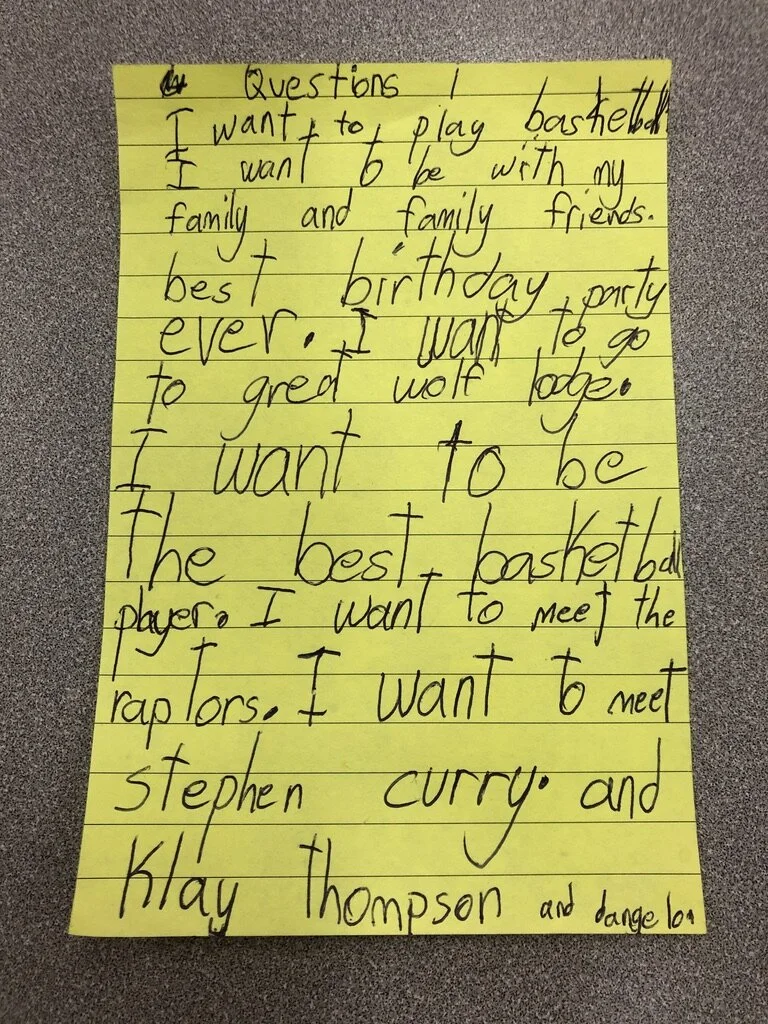 Questions 1
I want to play basketball
I want to be with my
family and family friends.
best birthday party
ever. I want to go
to great wolf lodge.
I want to be
the best basketball
player. I want to meet the
raptors. I want to meet
stephen curry. and
Klay Thompson and dangelo